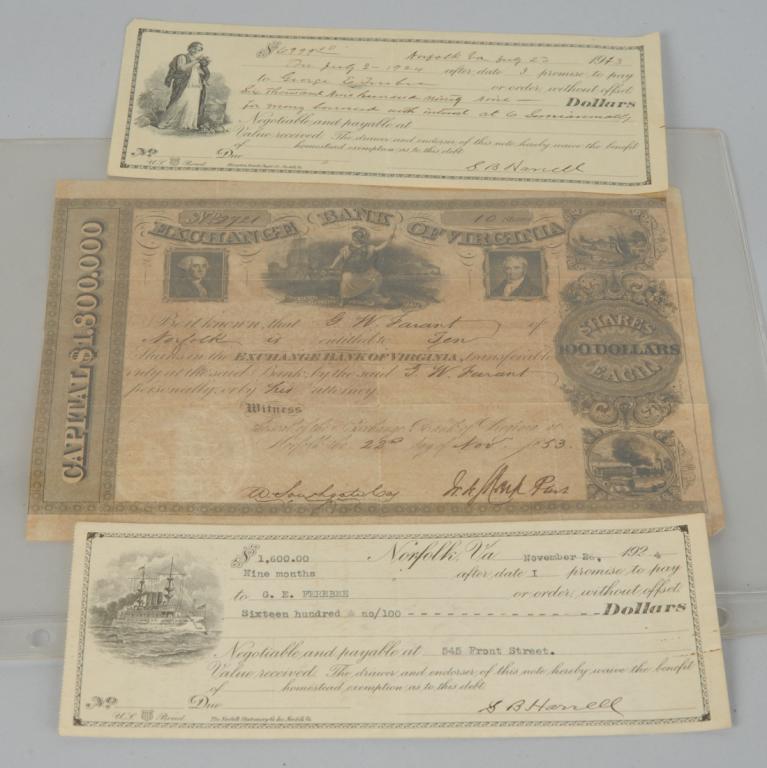 $6999 20 Norfolk Va July 23 1913
On July 2 - 1924 after date I promise to pay
to George E. Ferebee or order, without offset
Six Thousand Nine hundred ninety nine — Dollars
for money borrowed with interest at 6 Semiannually
Negotiable and payable at
Value received. The drawer and endorser of this note hereby waive the benefit
of homestead exemption as to this debt
No Due S B Harrell
U.S. Bond
No 2721 10 Shares
EXCHANGE BANK OF VIRGINIA
CAPITAL $1.800.000
Be it known, that G. W. Farant of
Norfolk is entitled to Ten
Shares in the EXCHANGE BANK OF VIRGINIA, transferable
only at the said Bank by the said G. W. Farant
personally, or by his attorney
SHARES
100 DOLLARS
EACH.
Witness
Norfolk the 22d day of Nov 1853.
$ 1,600.00 Norfolk, Va November 26, 192 4
Nine months after date I promise to pay
to G. E. FEREBEE or order, without offset
Sixteen hundred & no/100 - - - - - - - - - - Dollars
Negotiable and payable at 545 Front Street.
Value received. The drawer and endorser of this note hereby waive the benefit
of homestead exemption as to this debt
No Due S B Harrell
U.S. Bond The Norfolk Stationery Co. Inc. Norfolk, Va.